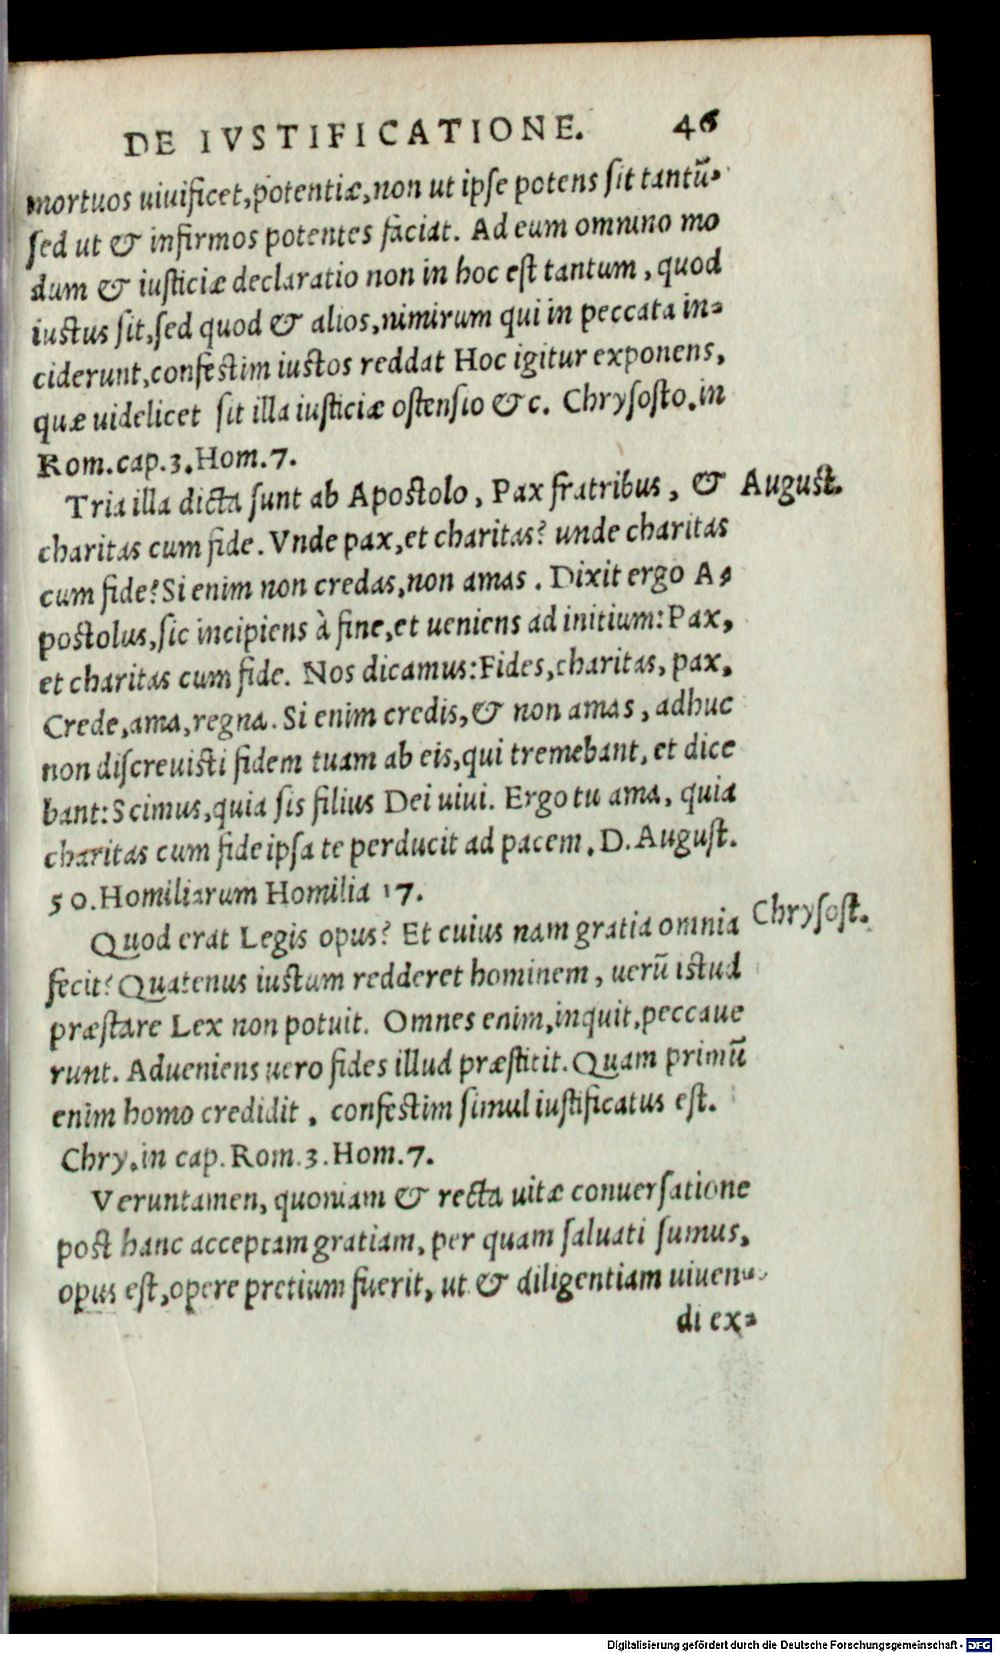 DE IVSTIFICATIONE. 46
mortuos uiuificet, potentiæ, non ut ipse potens sit tantũ,
sed ut & infirmos potentes faciat. Ad eum omnino mo
dum & iusticiæ declaratio non in hoc est tantum, quod
iustus sit, sed quod & alios, nimirum qui in peccata in=
ciderunt, confestim iustos reddat Hoc igitur exponens,
quæ uidelicet sit illa iusticiæ ostensio &c. Chrysosto. in
Rom. cap. 3. Hom. 7.
Tria illa dicta sunt ab Apostolo, Pax fratribus, & August.
charitas cum fide. Vnde pax, et charitas? unde charitas
cum fide? Si enim non credas, non amas. Dixit ergo A=
postolus, sic incipiens à fine, et ueniens ad initium: Pax,
et charitas cum fide. Nos dicamus: Fides, charitas, pax,
Crede, ama, regna. Si enim credis, & non amas, adhuc
non discreuisti fidem tuam ab eis, qui tremebant, et dice
bant: Scimus, quia sis filius Dei uiui. Ergo tu ama, quia
charitas cum fide ipsa te perducit ad pacem. D. August.
50. Homiliarum Homilia 17.
Quod erat Legis opus? Et cuius nam gratia omnia Chrysost.
fecit? Quatenus iustum redderet hominem, uerũ istud
præstare Lex non potuit. Omnes enim, inquit, peccaue
runt. Adueniens uero fides illud præstitit. Quam primũ
enim homo credidit, confestim simul iustificatus est.
Chry. in cap. Rom. 3. Hom. 7.
Veruntamen, quoniam & recta uitæ conuersatione
post hanc acceptam gratiam, per quam saluati sumus,
opus est, opere pretium fuerit, ut & diligentiam uiuen=
di ex=
Digitalisierung gefördert durch die Deutsche Forschungsgemeinschaft - DFG